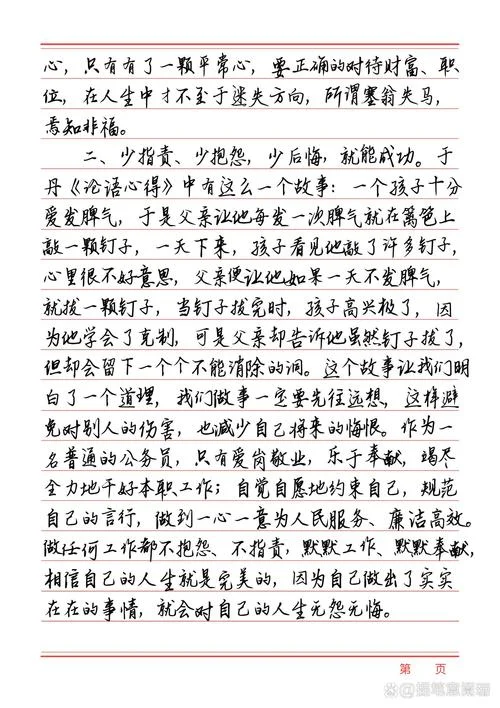 心，只有有了一颗平常心，要正确的对待财富、职
位，在人生中才不至于迷失方向，所谓塞翁失马，
焉知非福。
二、少指责、少抱怨，少后悔，就能成功。于
丹《论语心得》中有这么一个故事：一个孩子十分
爱发脾气，于是父亲让他每发一次脾气就在篱笆上
敲一颗钉子，一天下来，孩子看见他敲了许多钉子，
心里很不好意思，父亲便让他如果一天不发脾气，
就拔一颗钉子，当钉子拔完时，孩子高兴极了，因
为他学会了克制，可是父亲却告诉他虽然钉子拔了，
但却会留下一个个不能消除的洞。这个故事让我们明
白了一个道理，我们做事一定要先往远想，这样避
免对别人的伤害，也减少自己将来的悔恨。作为一
名普通的公务员，只有爱岗敬业，乐于奉献，竭尽
全力地干好本职工作；自觉自愿地约束自己，规范
自己的言行，做到一心一意为人民服务、廉洁高效。
做任何工作都不抱怨、不指责，默默工作、默默奉献，
相信自己的人生就是完美的，因为自己做出了实实
在在的事情，就会对自己的人生无怨无悔。
第 页